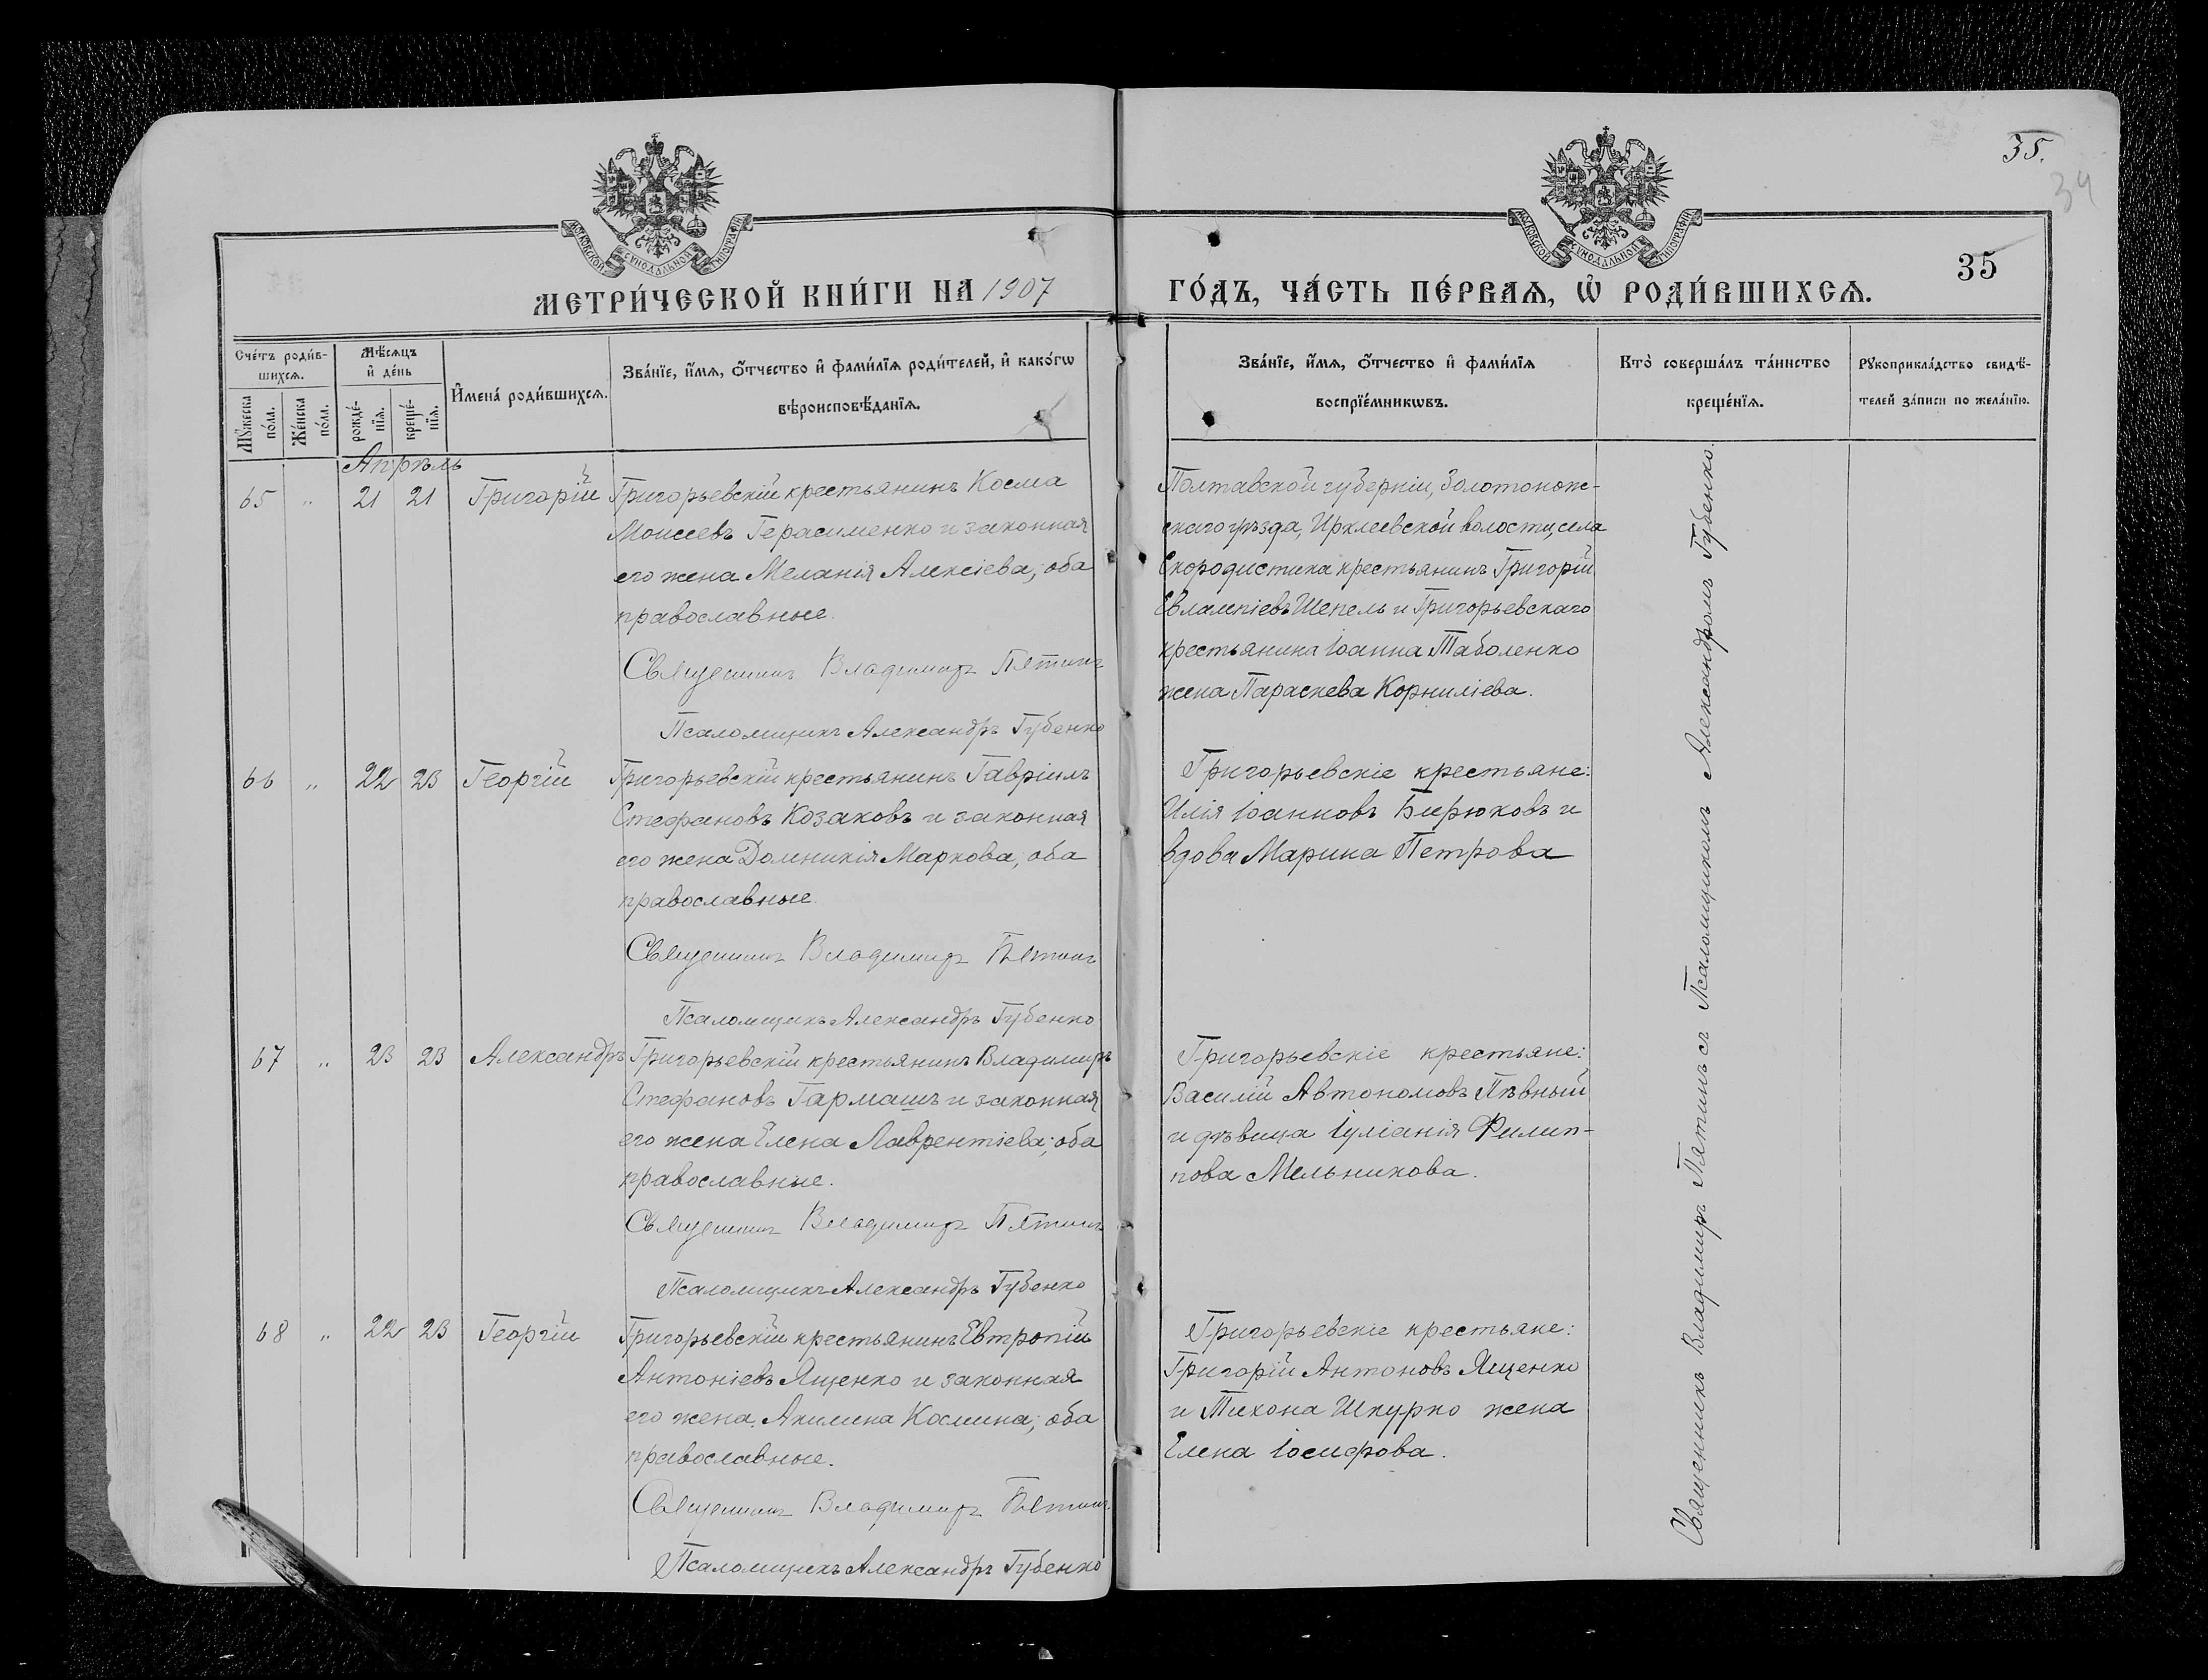 35.
34
МОСКОВСКОЙ СѴНОДАЛЬНОЙ ТИПОГРАФІИ
МОСКОВСКОЙ СѴНОДАЛЬНОЙ ТИПОГРАФІИ
35
МЕТРИ́ЧЕСКОЙ КНИ́ГИ НА 1907
ГО́ДЪ, ЧА́СТЬ ПЕ́РВАѦ, Ѡ҆ РОДИ́ВШИХСѦ.
Сче́тъ роди́в-
шихсѧ.
Мꙋ́жеска
по́ла.
Же́нска
по́ла.
Мѣ́сѧцъ
и҆ де́нь
рожде́-
нїѧ.
креще́-
нїѧ.
И҆мена̀ роди́вшихсѧ.
Зва́нїе, и҆́мѧ, ѻ҆́тчество и҆ фами́лїѧ роди́телей, и҆ како́гѡ
вѣроисповѣ́данїѧ.
Зва́нїе, и҆́мѧ, ѻ҆́тчество и҆ фами́лїѧ
воспрїе́мникѡвъ.
Кто̀ соверша́лъ та́инство
креще́нїѧ.
Рꙋкоприкла́дство свидѣ́-
телей за́писи по жела́нїю.
Апрѣль
65 „ 21 21 Григорій Григорьевскій крестьянинъ Косма
Моисеевъ Герасименко и законная
его жена Меланія Алексіева; оба
православные.
Священникъ Владимиръ Пятинъ
Псаломщикъ Александръ Губенко
Полтавской губерніи, Золотонож-
скаго уѣзда, Ирклеевской волости, села
Скородистика крестьянинъ Григорій
Евлампіевъ Шепель и Григорьевскаго
крестьянина Іоанна Таболенко
жена Параскева Корниліева.
66 „ 22 23 Георгій Григорьевскій крестьянинъ Гавріилъ
Стефановъ Козаковъ и законная
его жена Домникія Маркова; оба
православные.
Священникъ Владимиръ Пятинъ
Псаломщикъ Александръ Губенко
Григорьевскіе крестьяне:
Илія Іоанновъ Бирюковъ и
вдова Марина Петрова
67 „ 23 23 Александръ Григорьевскій крестьянинъ Владимиръ
Стефановъ Гармашъ и законная
его жена Елена Лаврентіева; оба
православные.
Священникъ Владимиръ Пятинъ
Псаломщикъ Александръ Губенко
Григорьевскіе крестьяне:
Василій Автономовъ Пѣвный
и дѣвица Іуліанія Филип-
пова Мельникова.
68 „ 22 23 Георгій Григорьевскій крестьянинъ Евтропій
Антоніевъ Ященко и законная
его жена Акилина Космина; оба
православные.
Священникъ Владимиръ Пятинъ
Псаломщикъ Александръ Губенко
Григорьевскіе крестьяне:
Григорій Антоновъ Ященко
и Тихона Шкурко жена
Елена Іосифова.
Священникъ Владимиръ Пятинъ съ Псаломщикомъ Александромъ Губенко